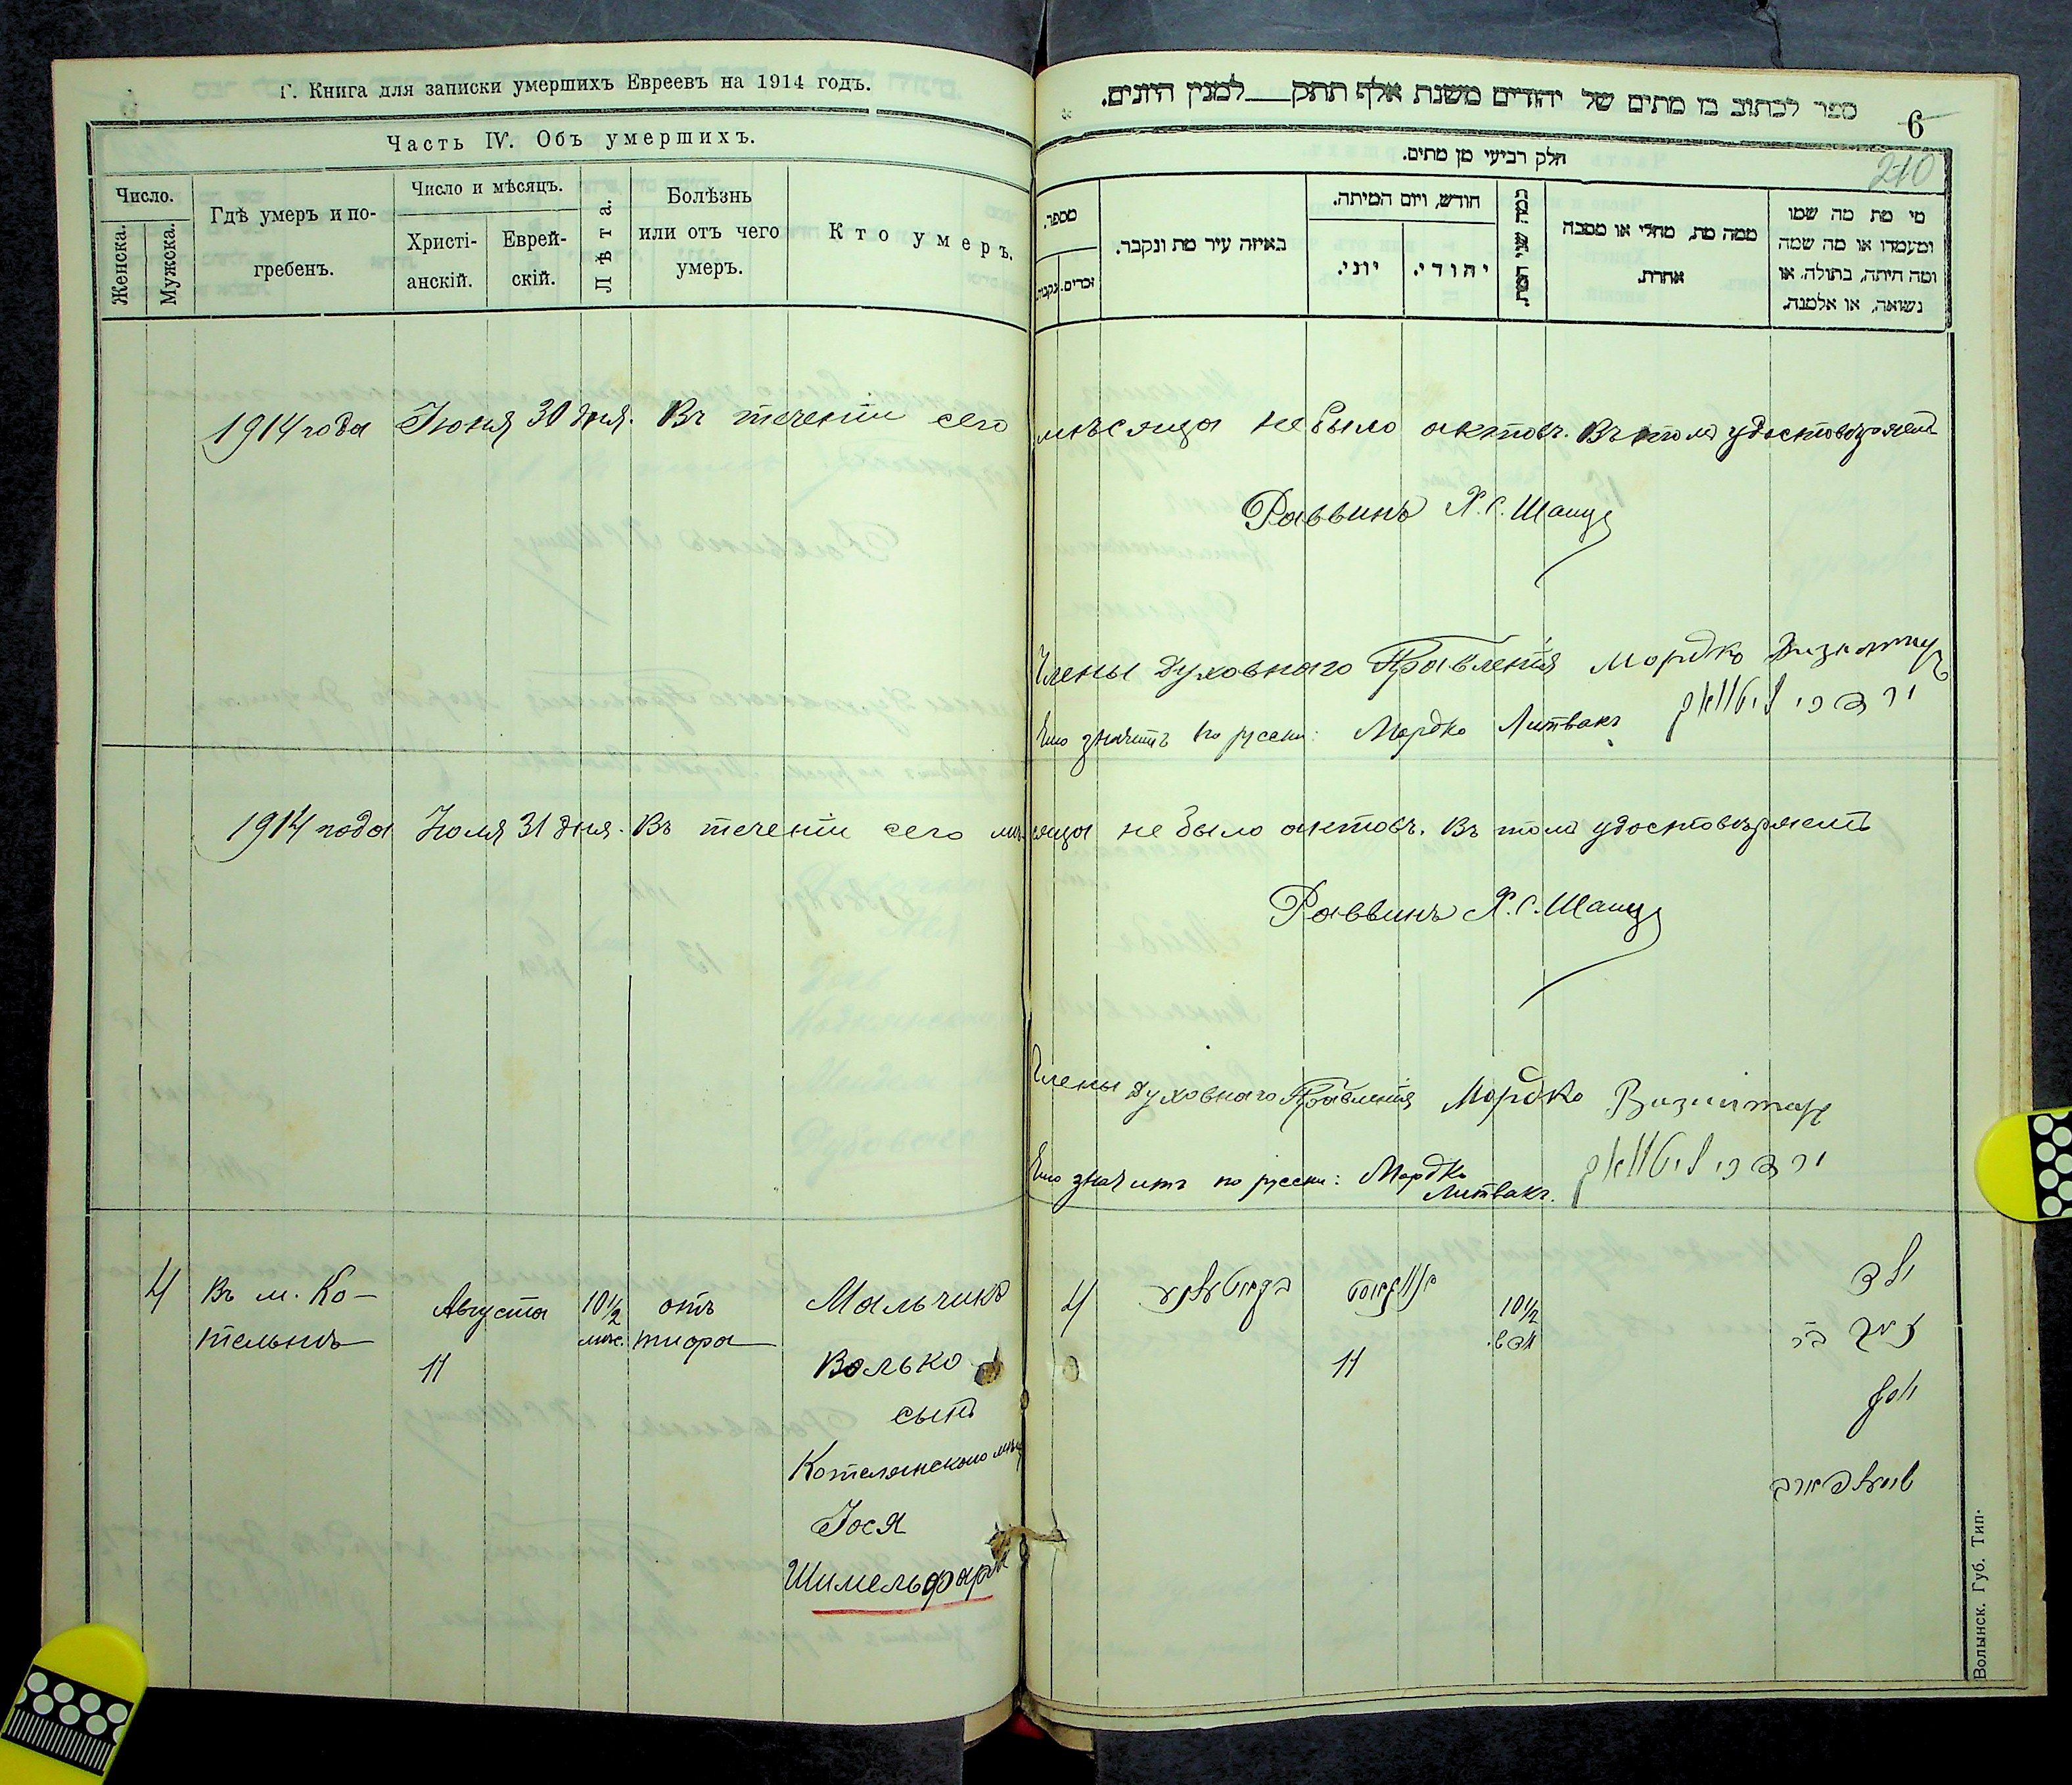 Г. Книга для записки умершихъ Евреевъ на 1914 годъ.
Часть IV. Объ умершихъ.
Число.
Женска.
Мужска.
Гдѣ умеръ и по-
гребенъ.
Число и мѣсяцъ.
Христі-
анскій.
Еврей-
скій.
Лѣта.
Болѣзнь
или отъ чего
умеръ.
Кто умеръ.
ספר לכתוב בו מתים של יהודים משנת אלף תתק___למנין היונים.
6
210
חלק רביעי מן מתים.
מספר.
נקבות.
זכרים.
באיזה עיר מת ונקבר.
חודש, ויום המיתה.
יוני.
יהודי.
כמה שני המת.
ממה מת, מחלי או מסבה
אחרת.
מי מת מה שמו
ומעמדו או מה שמה
ומה היתה, בתולה, או
נשואה, או אלמנה.
1914 года Іюня 30 дня. Въ теченіи сего мѣсяца не было актовъ. Въ томъ удостовѣряемъ
Раввинъ Х. С. Шапиро
Члены Духовнаго Правленія Мордко
מרדכי ליטוואק
Что значитъ по русски: Мордко Литвакъ
1914 года Іюля 31 дня. Въ теченіи сего мѣсяца не было актовъ. Въ томъ удостовѣряемъ
Раввинъ Х. С. Шапиро
Члены Духовнаго Правленія Мордко
מרדכי ליטוואק
Что значитъ по русски: Мордко
Литвакъ.
4
Въ м. Ко-
тельнѣ
Августа
11
10½
мѣс.
отъ
тифа
Мальчикъ
Волько
сынъ
Котелянскаго мѣщ
Іося
Шимельфарб
4
קאטעלנע
אווגוסט
11
10½
חדש.
ילד
בר
יוסף
שימעלפארב
Волынск. Губ. Тип.